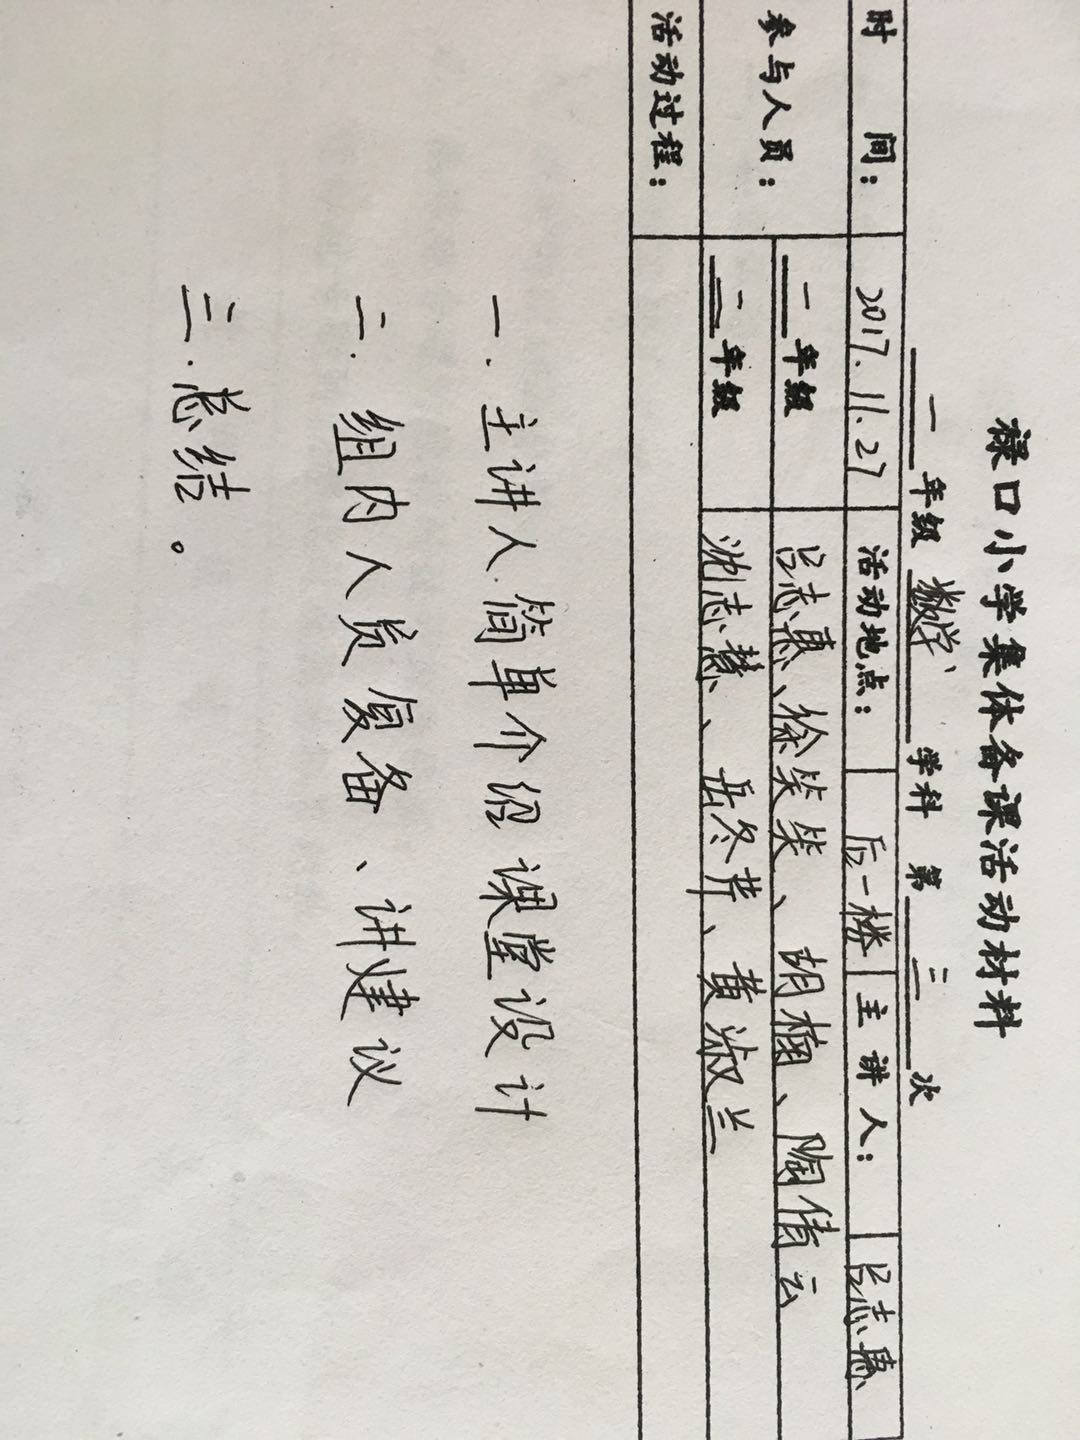 禄口小学集体备课活动材料
一年级 数学 学科 第 三 次
时 间： 2017.11.27 活动地点： 后一楼 主讲人： 吕志惠
参与人员： 一年级 吕志惠、徐笑笑、胡楠、陶倩云
一年级 沈志慧、岳冬芹、黄淑兰
活动过程：
一．主讲人简单介绍课堂设计
二．组内人员复备、讲建议
三．总结。